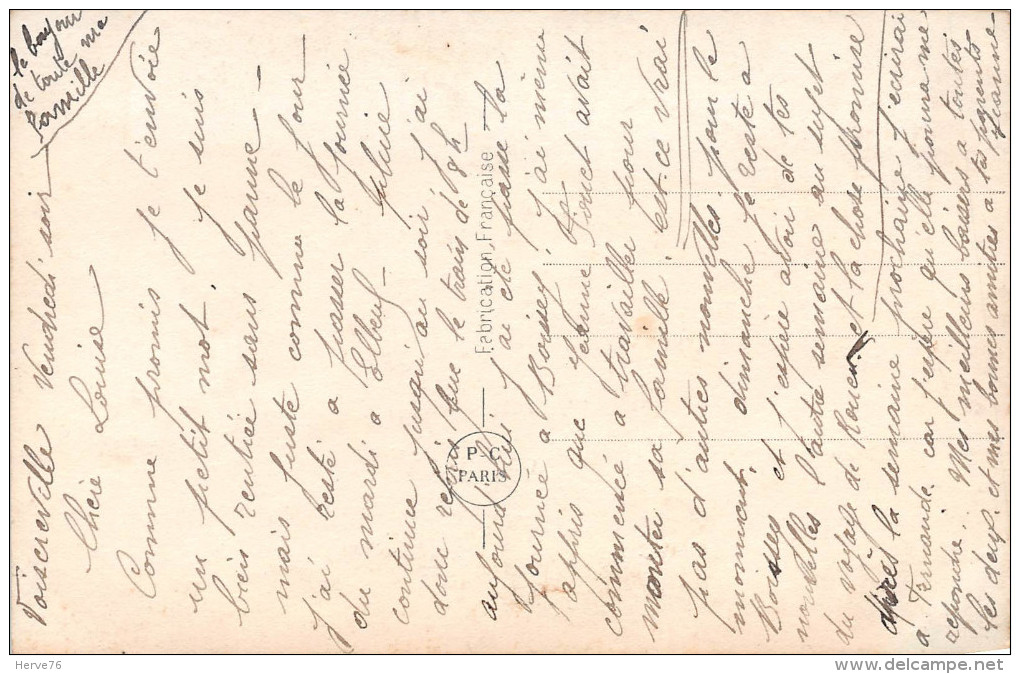 Voiscreville Vendredi soir
Chère Louise
Comme promis je t'envoie
un petit mot, je suis
bien rentrée sans panne —
mais juste comme le jour —
J'ai resté a passer la journée
du mardi a Elbeuf — pluie
continue jusqu'au soir j'ai
donc repri que le train de 8h
aujourd'hui j'ai été passé la
journée a Boissey, j'ai même
appris que Jeanne avait
commencé a travaillé pour
monter sa famille. Est-ce vrai
pas d'autres nouvelles pour le
moment, dimanche je reste a
Boissey et j'espère avoir de tes
nouvelles l'autre semaine au sujet
du voyage de Rouen et la chose promise
après la semaine prochaine j'écrirai
a Fernande car j'espère qu'elle pourra me
répondre. Mes meilleurs baisers a toutes
les deux et mes bonnes amitiés a tes parents
Jeanne
le bonjour
de toute ma
famille
Fabrication Française
P-C
PARIS
Herve76
www.delcampe.net